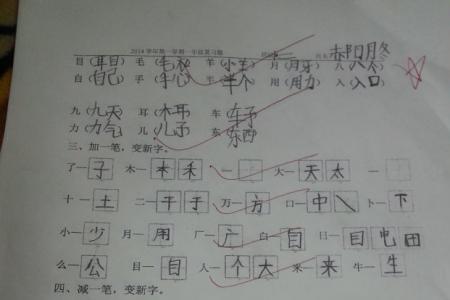 2014 学年第一学期一年级复习题
目（耳目） 毛（毛衣） 羊（小羊） 月（月牙） 八（八个）
自（自己） 手（手心） 半（半个） 用（用力） 入（入口）
九（九天） 耳（木耳） 车（车子）
力（力气） 儿（儿子） 东（东西）
三、加一笔，变新字。
了—子 木—本 禾 一— 大—天 太
十—土 二—干 于 万—方 口—中 卜—下
小—少 月—用 厂—广 白—自 日—目 电 田
么—公 目—自 人—个 大 米—来 牛—生
四、减一笔，变新字。